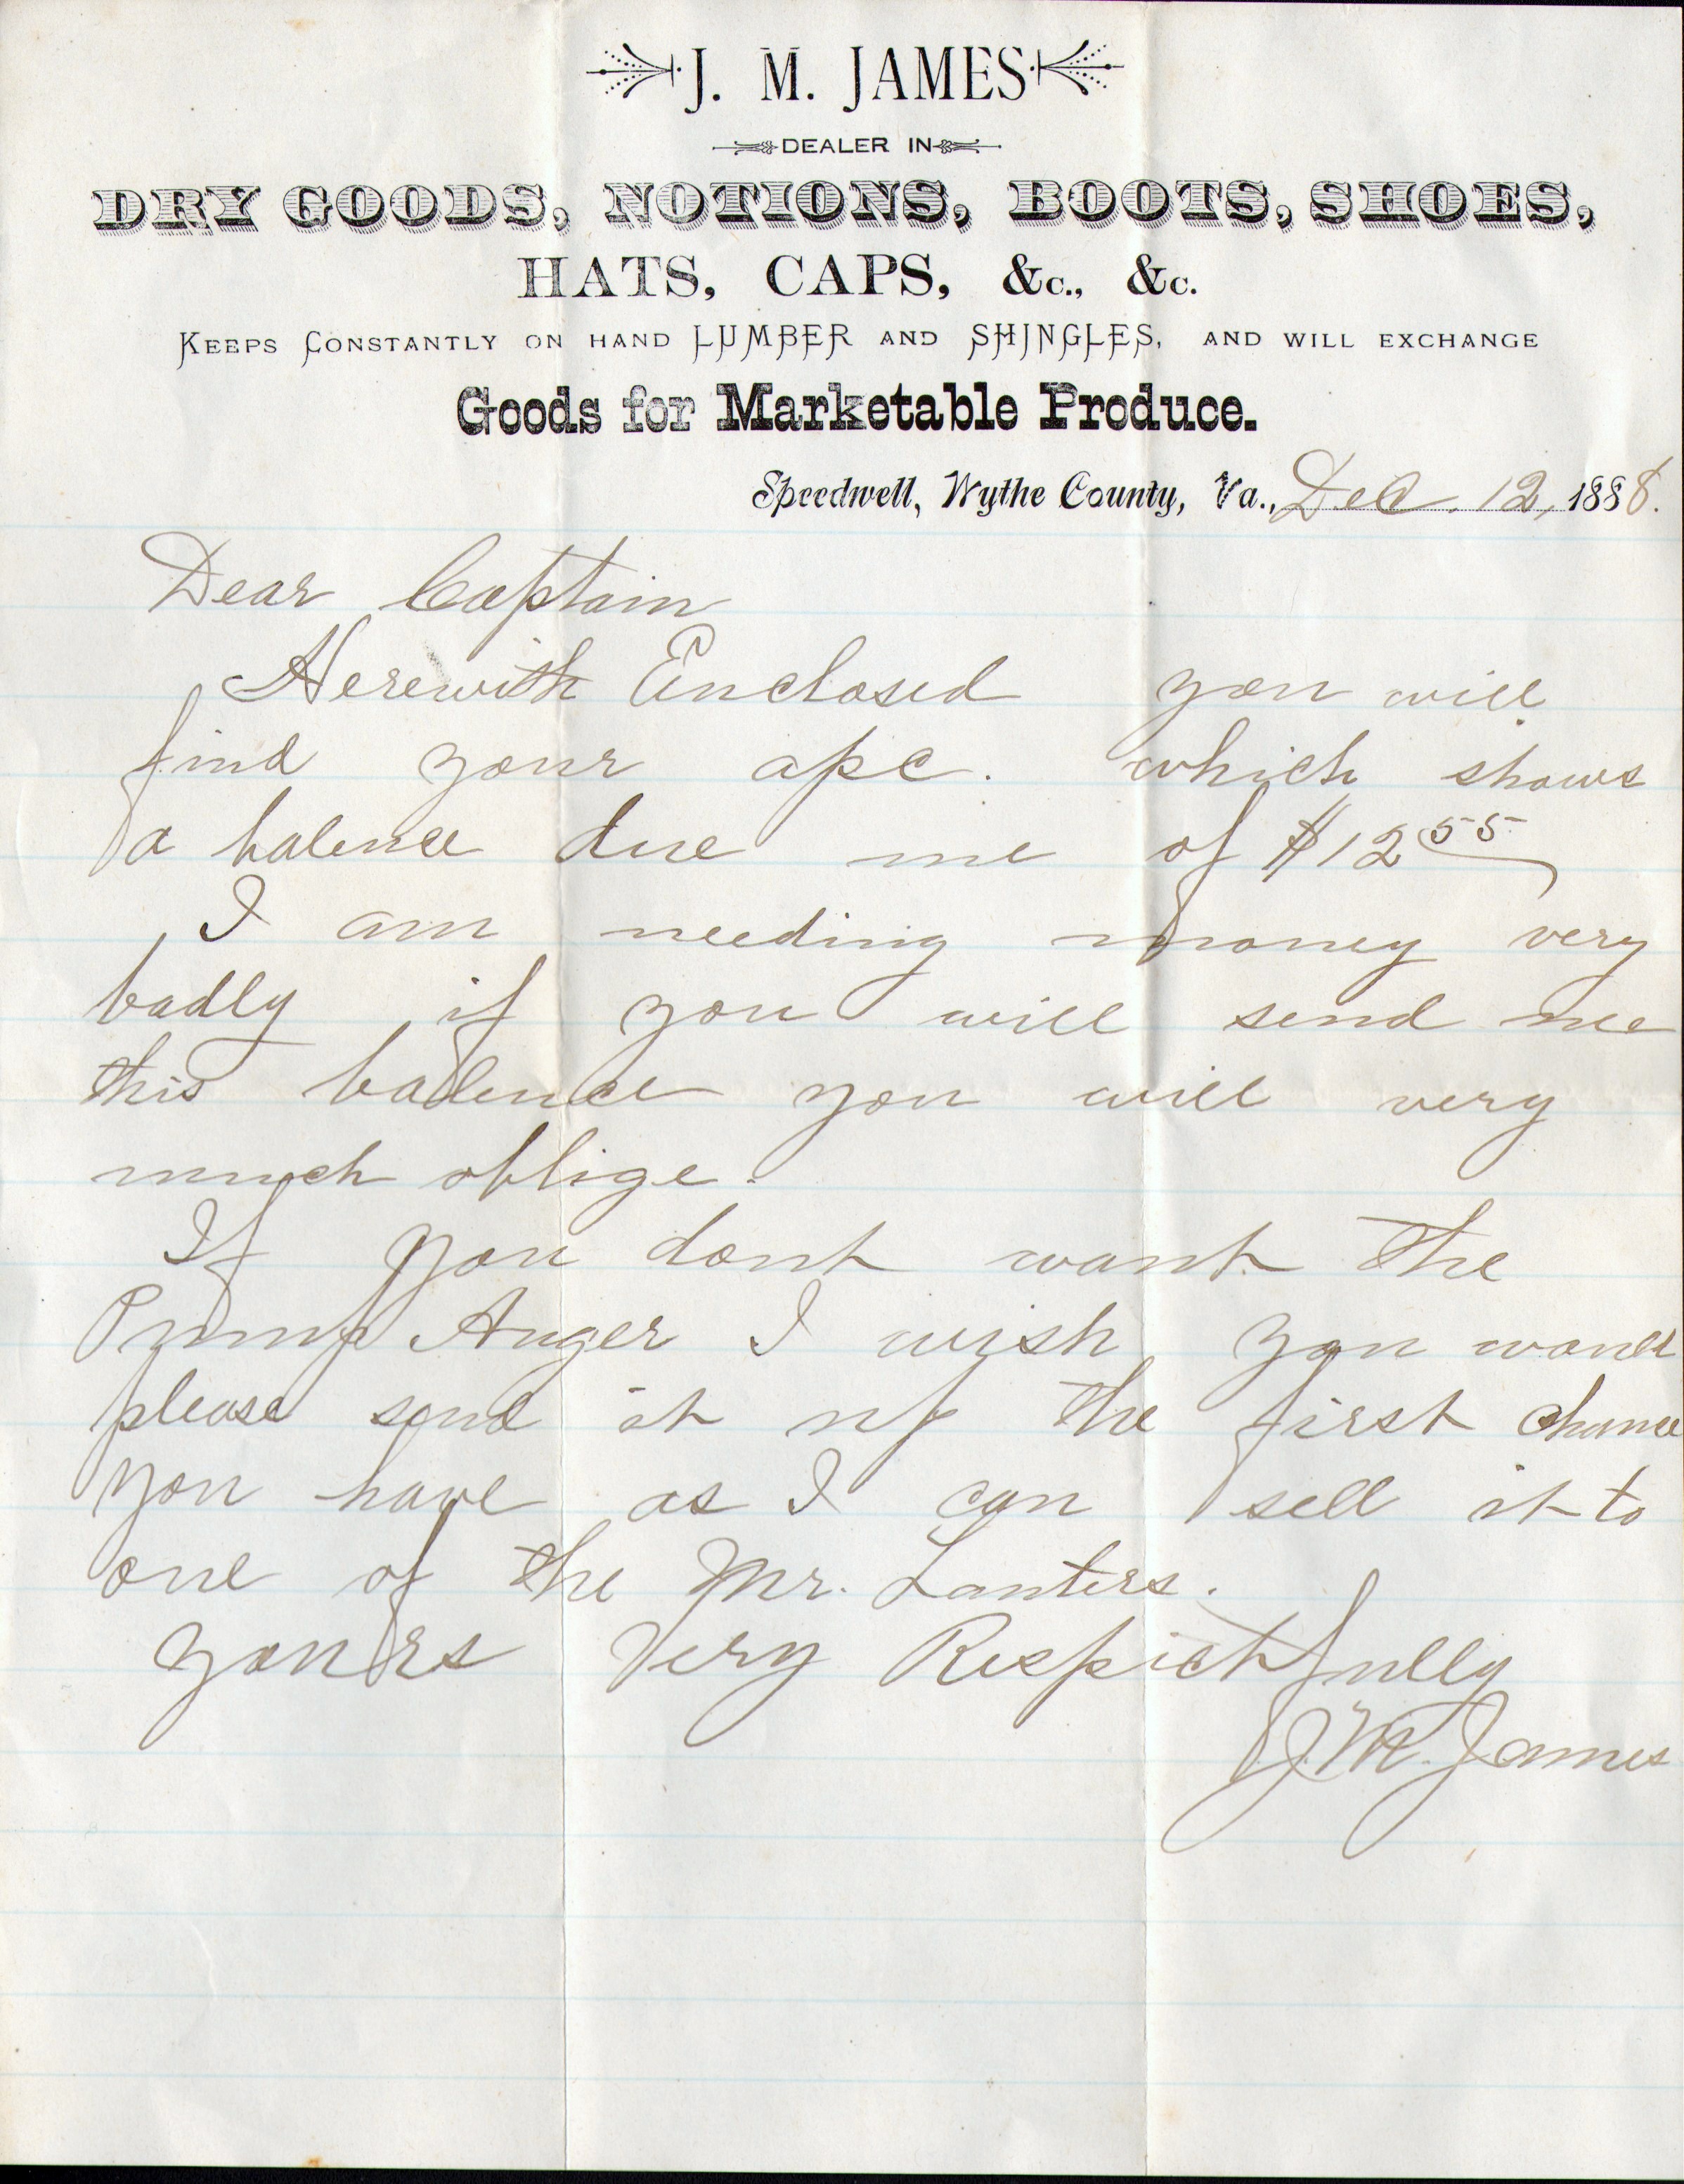 J. M. JAMES
DEALER IN
DRY GOODS, NOTIONS, BOOTS, SHOES,
HATS, CAPS, &c., &c.
KEEPS CONSTANTLY ON HAND LUMBER AND SHINGLES, AND WILL EXCHANGE
Goods for Marketable Produce.
Speedwell, Wythe County, Va., Dec. 12, 1888.
Dear Captain
Herewith Enclosed you will
find your apc. which shows
a balence due me of $12 55
I am needing money very
badly if you will send me
this balence you will very
much oblige.
If you dont want the
Pump Auger I wish you would
please send it up the first chance
you have as I can sell it to
one of the Mr. Lanters.
yours Very Respectfully
J. M. James